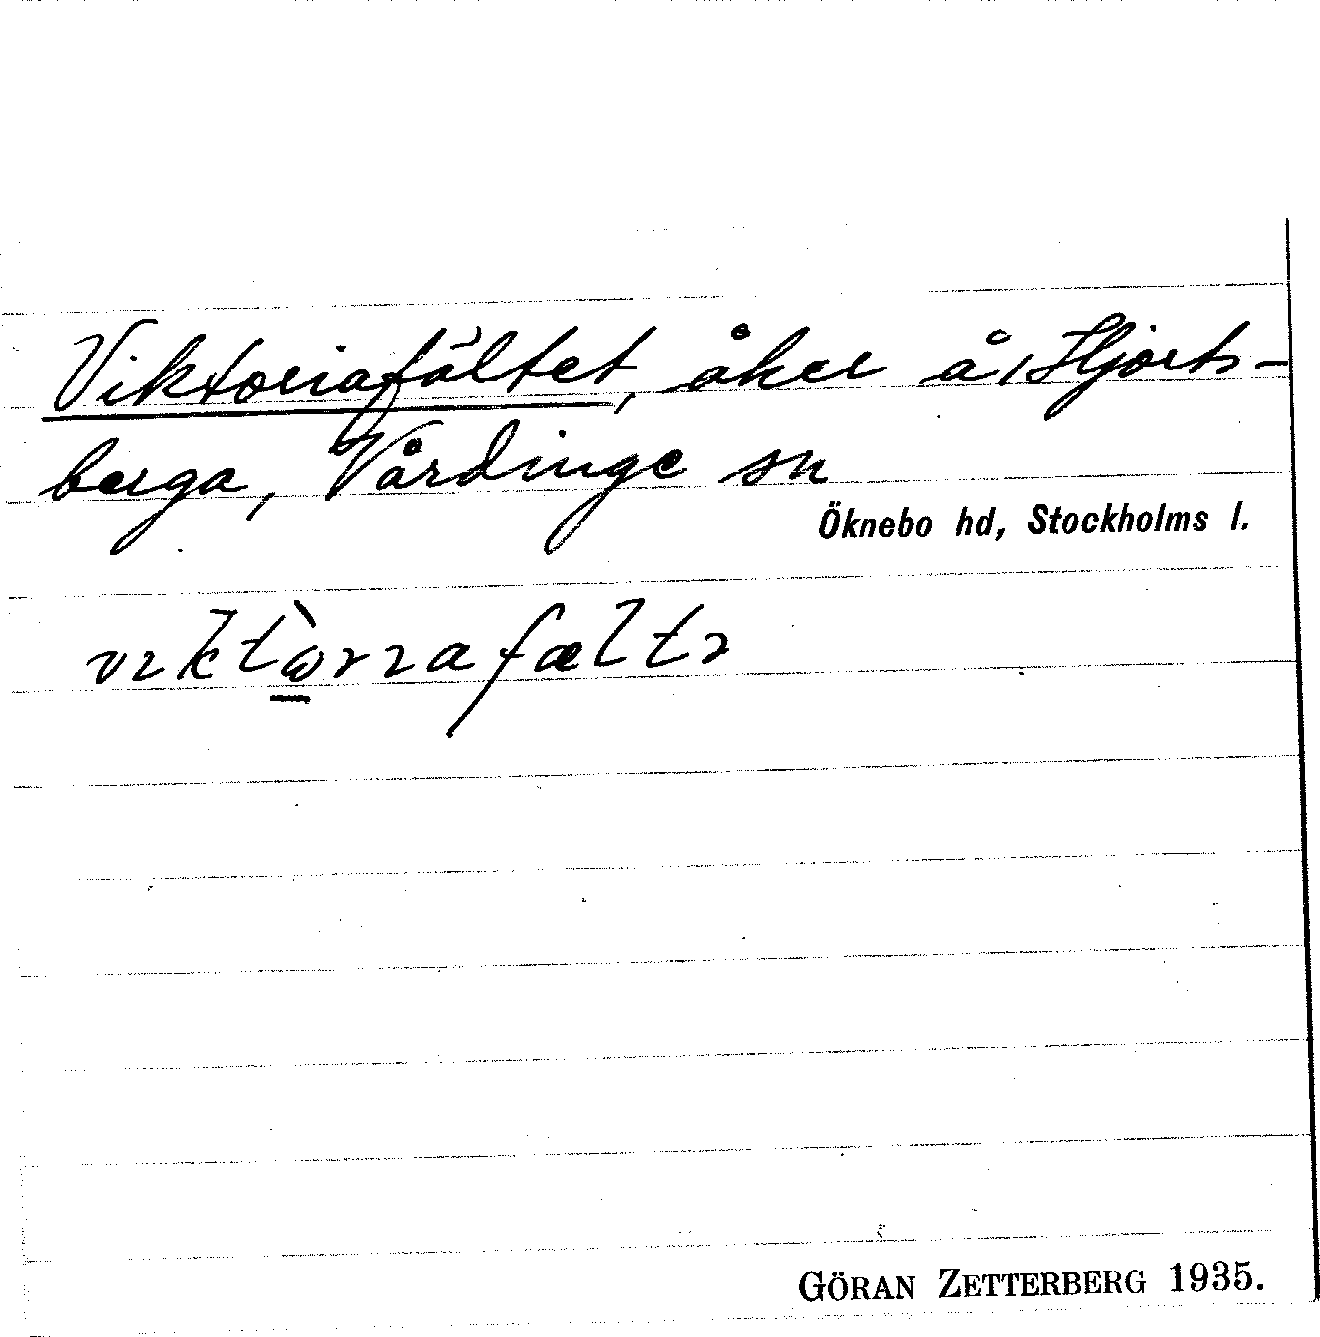 Viktoriafältet, åker å, Hjorts-
berga, Vårdinge sn
Öknebo hd, Stockholms l.
vɪktὼrɪafæltɪ
GÖRAN ZETTERBERG 1935.